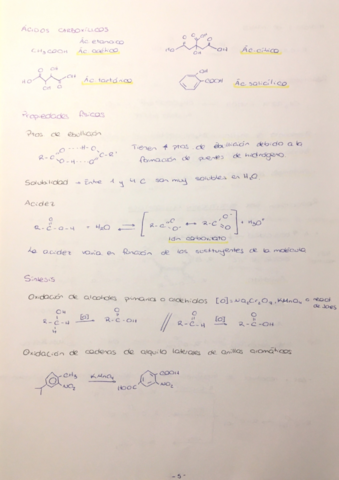 Ácidos carboxílicos
Ác. etanoico
CH3COOH Ác. acético
Ác. cítrico
Ác. tartárico
Ác. salicílico
OH
COOH
Propiedades físicas
Ptos de ebullición
Tienen ↑ ptos. de ebullición debido a la
formación de puentes de hidrógeno
Solubilidad → Entre 1 y 4 C son muy solubles en H2O
Acidez
R-C-O-H + H2O ⇌ [ R-C ↔ R-C ] + H3O+
Ión carboxilato
La acidez varía en función de los sustituyentes de la molécula
Síntesis
Oxidación de alcoholes primarios o aldehídos [O]=Na2Cr2O7, KMnO4 o
R-C-H [O] R-C-OH // R-C-H [O] R-C-OH
Oxidación de cadenas de alquilo laterales de anillos aromáticos
CH3
NO2
KMnO4
COOH
HOOC
NO2
- 5 -